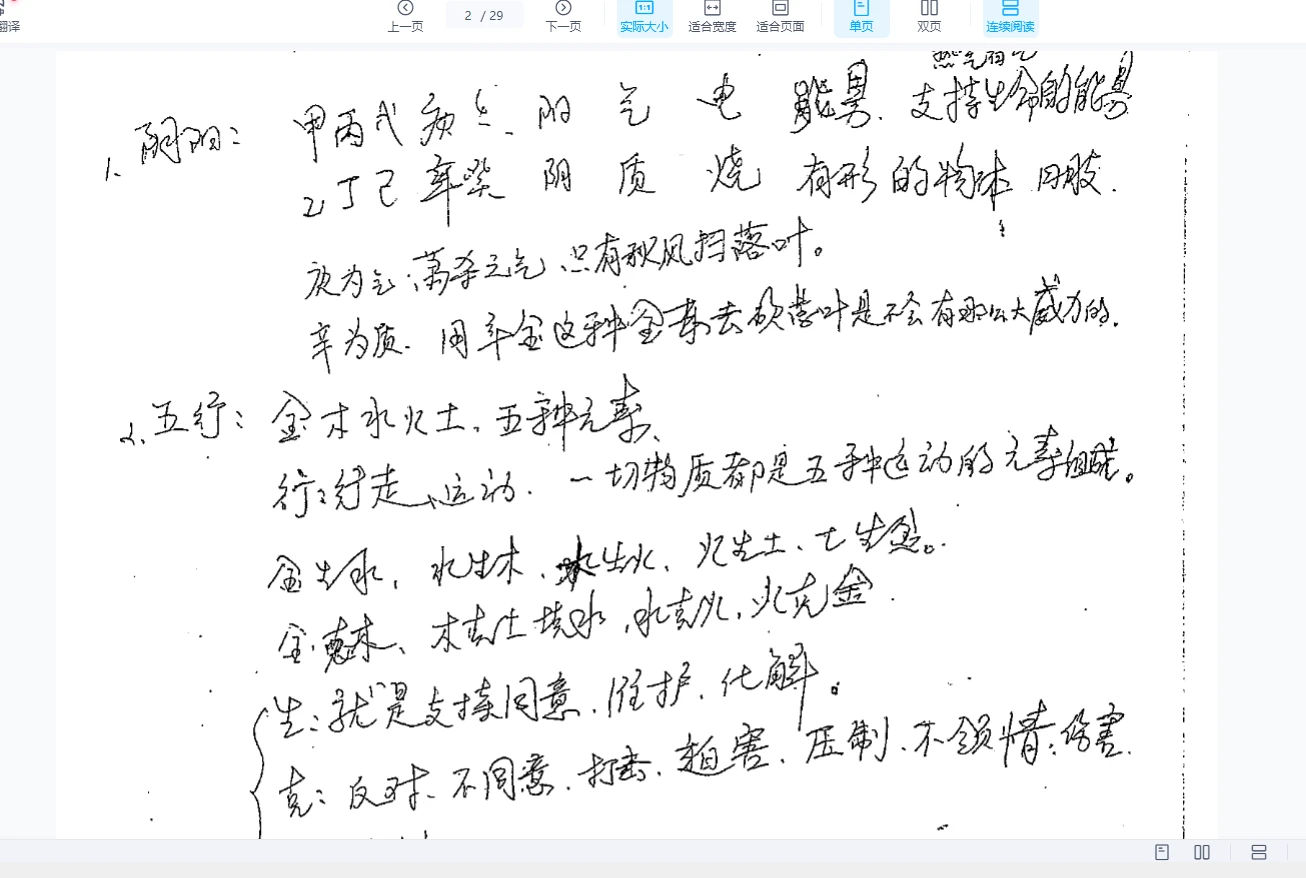 翻译 上一页 2 / 29 下一页 实际大小 适合宽度 适合页面 单页 双页 连续阅读
1、阴阳：甲丙戊 阳 气 电 能男. 支持生命的能
乙丁己辛癸 阴 质 烧 有形的物体 四肢.
庚为气：萧杀之气、只有秋风扫落叶。
辛为质. 用辛金这种金 去砍落叶是不会有那么大威力的.
2、五行：金木水火土、五种元素、
行：行走、运动. 一切物质都是五种运动的元素组成。
金生水, 水生木、木生火、火生土、土生金。
金克木、木克土 水, 水克火, 火克金.
生：就是支持同意、维护、化解。
克：反对、不同意、打击、迫害、压制、不领情、伤害.